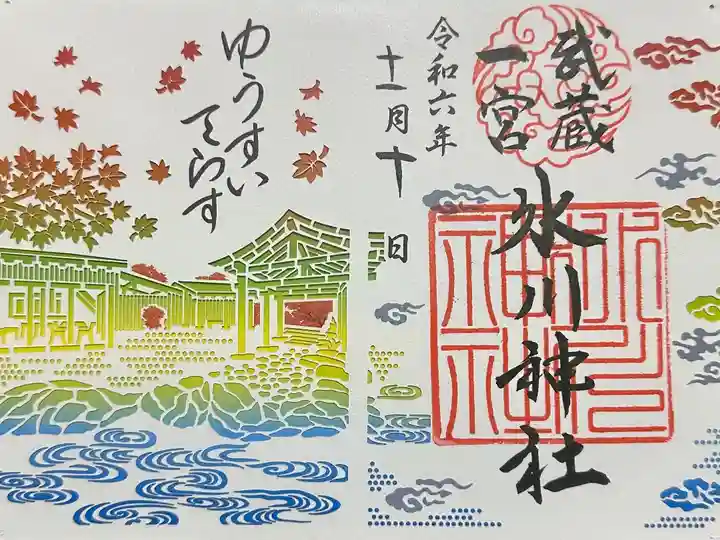 武蔵
一宮
氷川神社
令和六年
十一月十日
ゆうすい
てらす
氷川神社